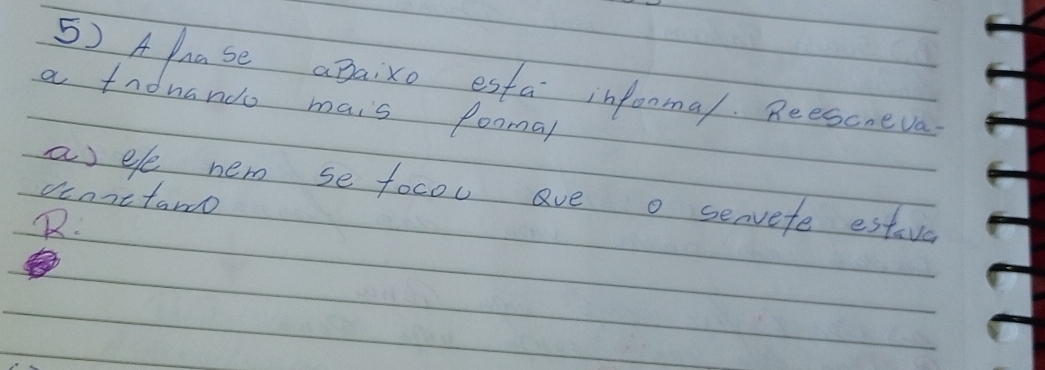 5) A frase abaixo está informal. Reescreva-
a tornando mais formal
a) ele nem se tocou que o servete estava
R: